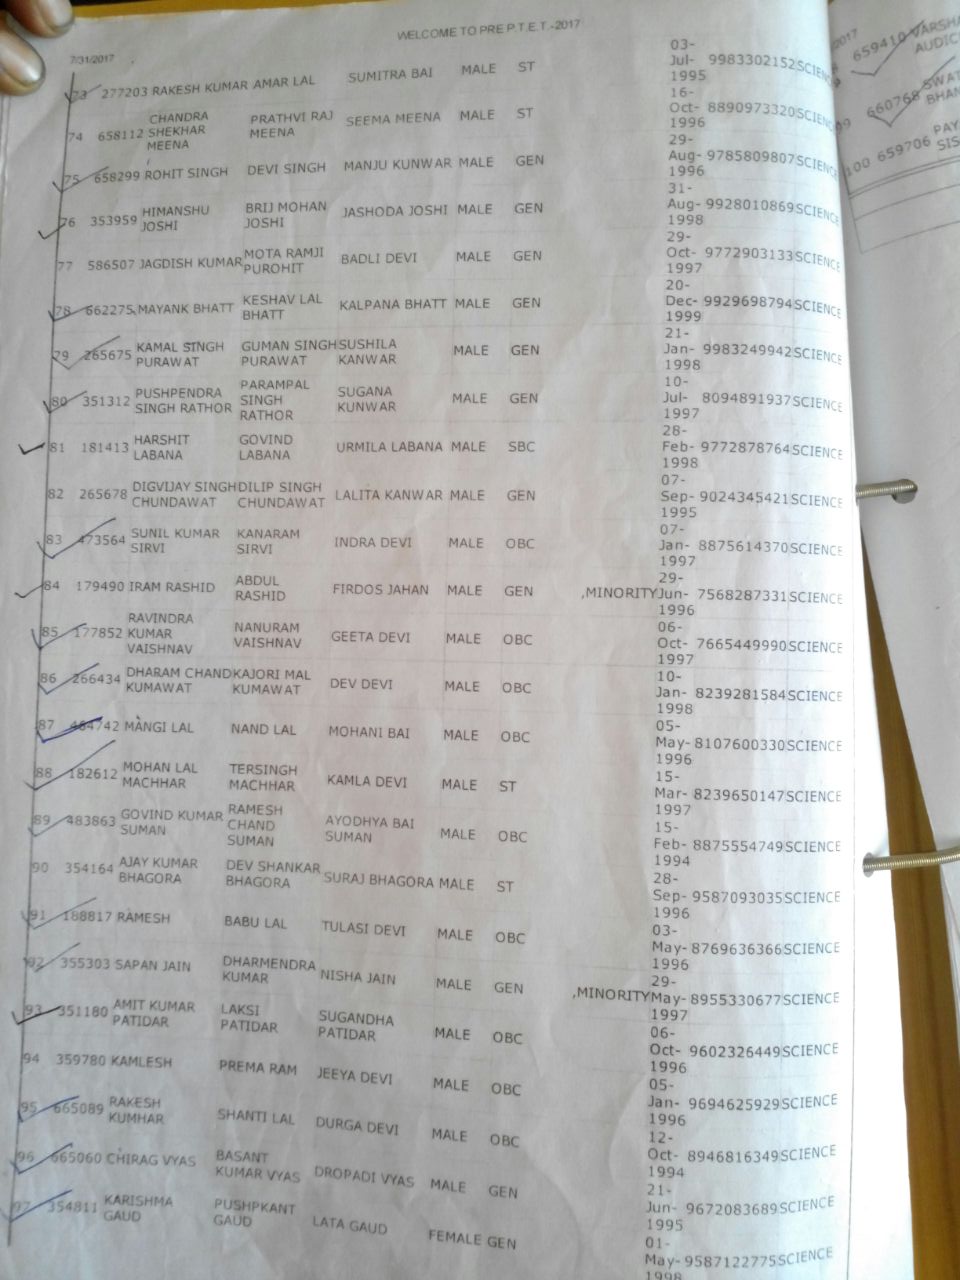 WELCOME TO PRE P.T.E.T.-2017
7/31/2017
03-
73 277203 RAKESH KUMAR AMAR LAL SUMITRA BAI MALE ST Jul- 9983302152 SCIENCE
1995
CHANDRA 16-
74 658112 SHEKHAR PRATHVI RAJ SEEMA MEENA MALE ST Oct- 8890973320 SCIENCE
MEENA MEENA 1996
29-
75 658299 ROHIT SINGH DEVI SINGH MANJU KUNWAR MALE GEN Aug- 9785809807 SCIENCE
1996
31-
76 353959 HIMANSHU BRIJ MOHAN JASHODA JOSHI MALE GEN Aug- 9928010869 SCIENCE
JOSHI JOSHI 1998
29-
77 586507 JAGDISH KUMAR MOTA RAMJI BADLI DEVI MALE GEN Oct- 9772903133 SCIENCE
PUROHIT 1997
20-
78 662275 MAYANK BHATT KESHAV LAL KALPANA BHATT MALE GEN Dec- 9929698794 SCIENCE
BHATT 1999
21-
79 265675 KAMAL SINGH GUMAN SINGH SUSHILA MALE GEN Jan- 9983249942 SCIENCE
PURAWAT PURAWAT KANWAR 1998
PARAMPAL 10-
80 351312 PUSHPENDRA SINGH SUGANA MALE GEN Jul- 8094891937 SCIENCE
SINGH RATHOR RATHOR KUNWAR 1997
28-
81 181413 HARSHIT GOVIND URMILA LABANA MALE SBC Feb- 9772878764 SCIENCE
LABANA LABANA 1998
07-
82 265678 DIGVIJAY SINGH DILIP SINGH LALITA KANWAR MALE GEN Sep- 9024345421 SCIENCE
CHUNDAWAT CHUNDAWAT 1995
07-
83 473564 SUNIL KUMAR KANARAM INDRA DEVI MALE OBC Jan- 8875614370 SCIENCE
SIRVI SIRVI 1997
29-
84 179490 IRAM RASHID ABDUL FIRDOS JAHAN MALE GEN ,MINORITY Jun- 7568287331 SCIENCE
RASHID 1996
RAVINDRA 06-
85 177852 KUMAR NANURAM GEETA DEVI MALE OBC Oct- 7665449990 SCIENCE
VAISHNAV VAISHNAV 1997
10-
86 266434 DHARAM CHAND KAJORI MAL DEV DEVI MALE OBC Jan- 8239281584 SCIENCE
KUMAWAT KUMAWAT 1998
05-
87 464742 MANGI LAL NAND LAL MOHANI BAI MALE OBC May- 8107600330 SCIENCE
1996
15-
88 182612 MOHAN LAL TERSINGH KAMLA DEVI MALE ST Mar- 8239650147 SCIENCE
MACHHAR MACHHAR 1997
RAMESH 15-
89 483863 GOVIND KUMAR CHAND AYODHYA BAI MALE OBC Feb- 8875554749 SCIENCE
SUMAN SUMAN SUMAN 1994
28-
90 354164 AJAY KUMAR DEV SHANKAR SURAJ BHAGORA MALE ST Sep- 9587093035 SCIENCE
BHAGORA BHAGORA 1996
03-
91 188817 RAMESH BABU LAL TULASI DEVI MALE OBC May- 8769636366 SCIENCE
1996
29-
92 355303 SAPAN JAIN DHARMENDRA NISHA JAIN MALE GEN ,MINORITY May- 8955330677 SCIENCE
KUMAR 1997
06-
93 351180 AMIT KUMAR LAKSI SUGANDHA MALE OBC Oct- 9602326449 SCIENCE
PATIDAR PATIDAR PATIDAR 1996
05-
94 359780 KAMLESH PREMA RAM JEEYA DEVI MALE OBC Jan- 9694625929 SCIENCE
1996
12-
95 665089 RAKESH SHANTI LAL DURGA DEVI MALE OBC Oct- 8946816349 SCIENCE
KUMHAR 1994
21-
96 665060 CHIRAG VYAS BASANT DROPADI VYAS MALE GEN Jun- 9672083689 SCIENCE
KUMAR VYAS 1995
01-
97 354811 KARISHMA PUSHPKANT LATA GAUD FEMALE GEN May- 9587122775 SCIENCE
GAUD GAUD 1998
659410 VARSHA
AUDIC
660768 SWAT
BHAN
100 659706 PAY
SIS